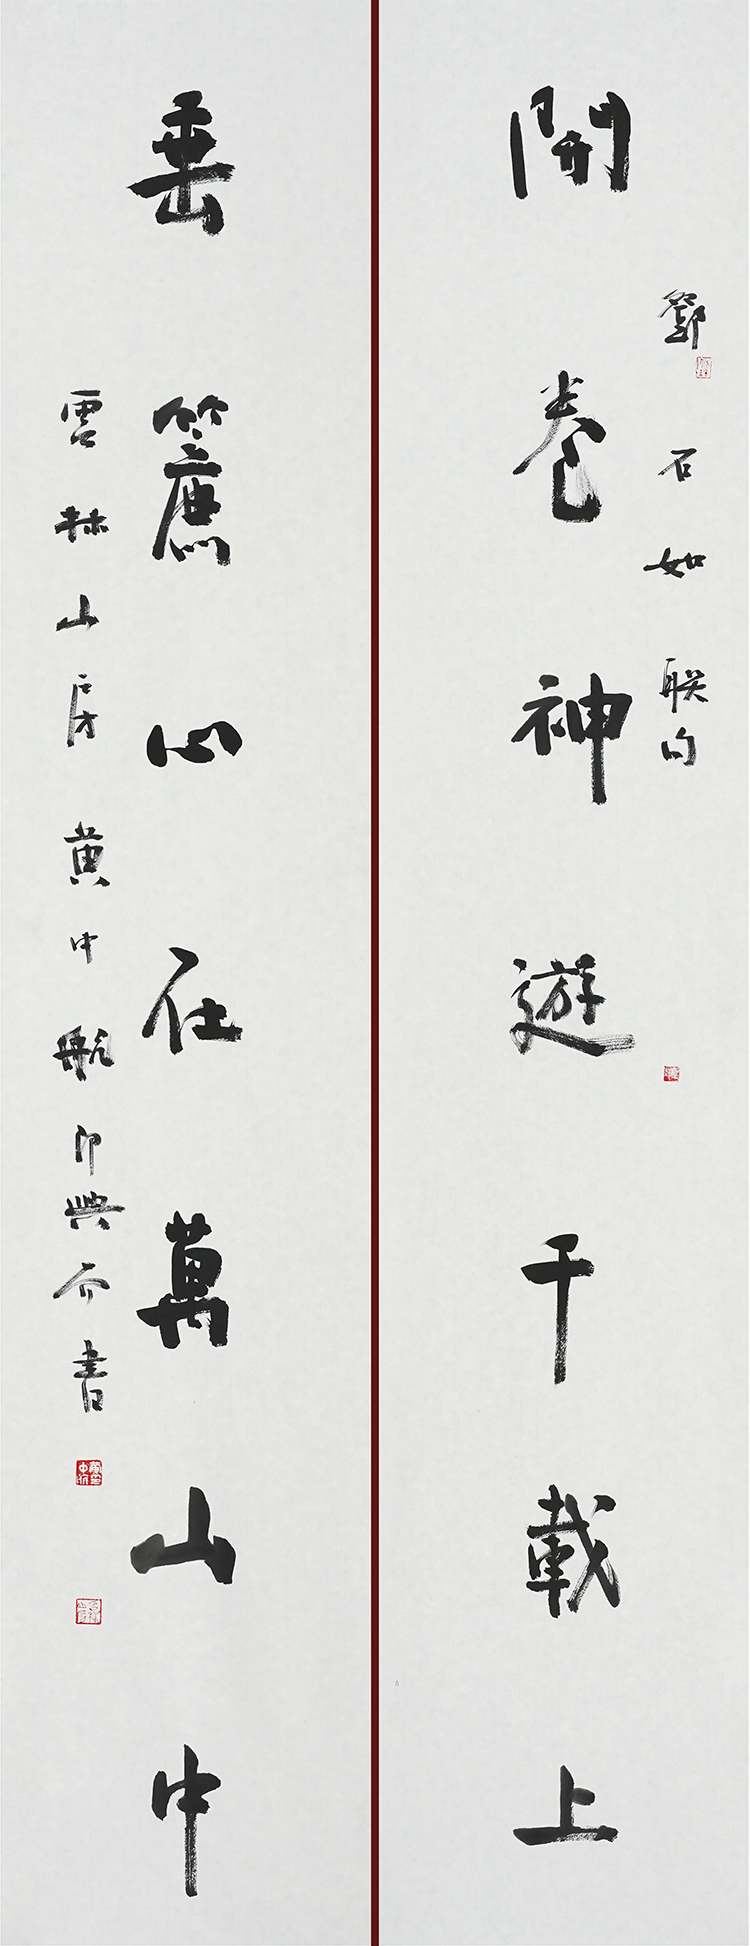 開卷神遊千載上
鄧石如聯句
垂簾心在萬山中
雲林山房黄中航印興齐書